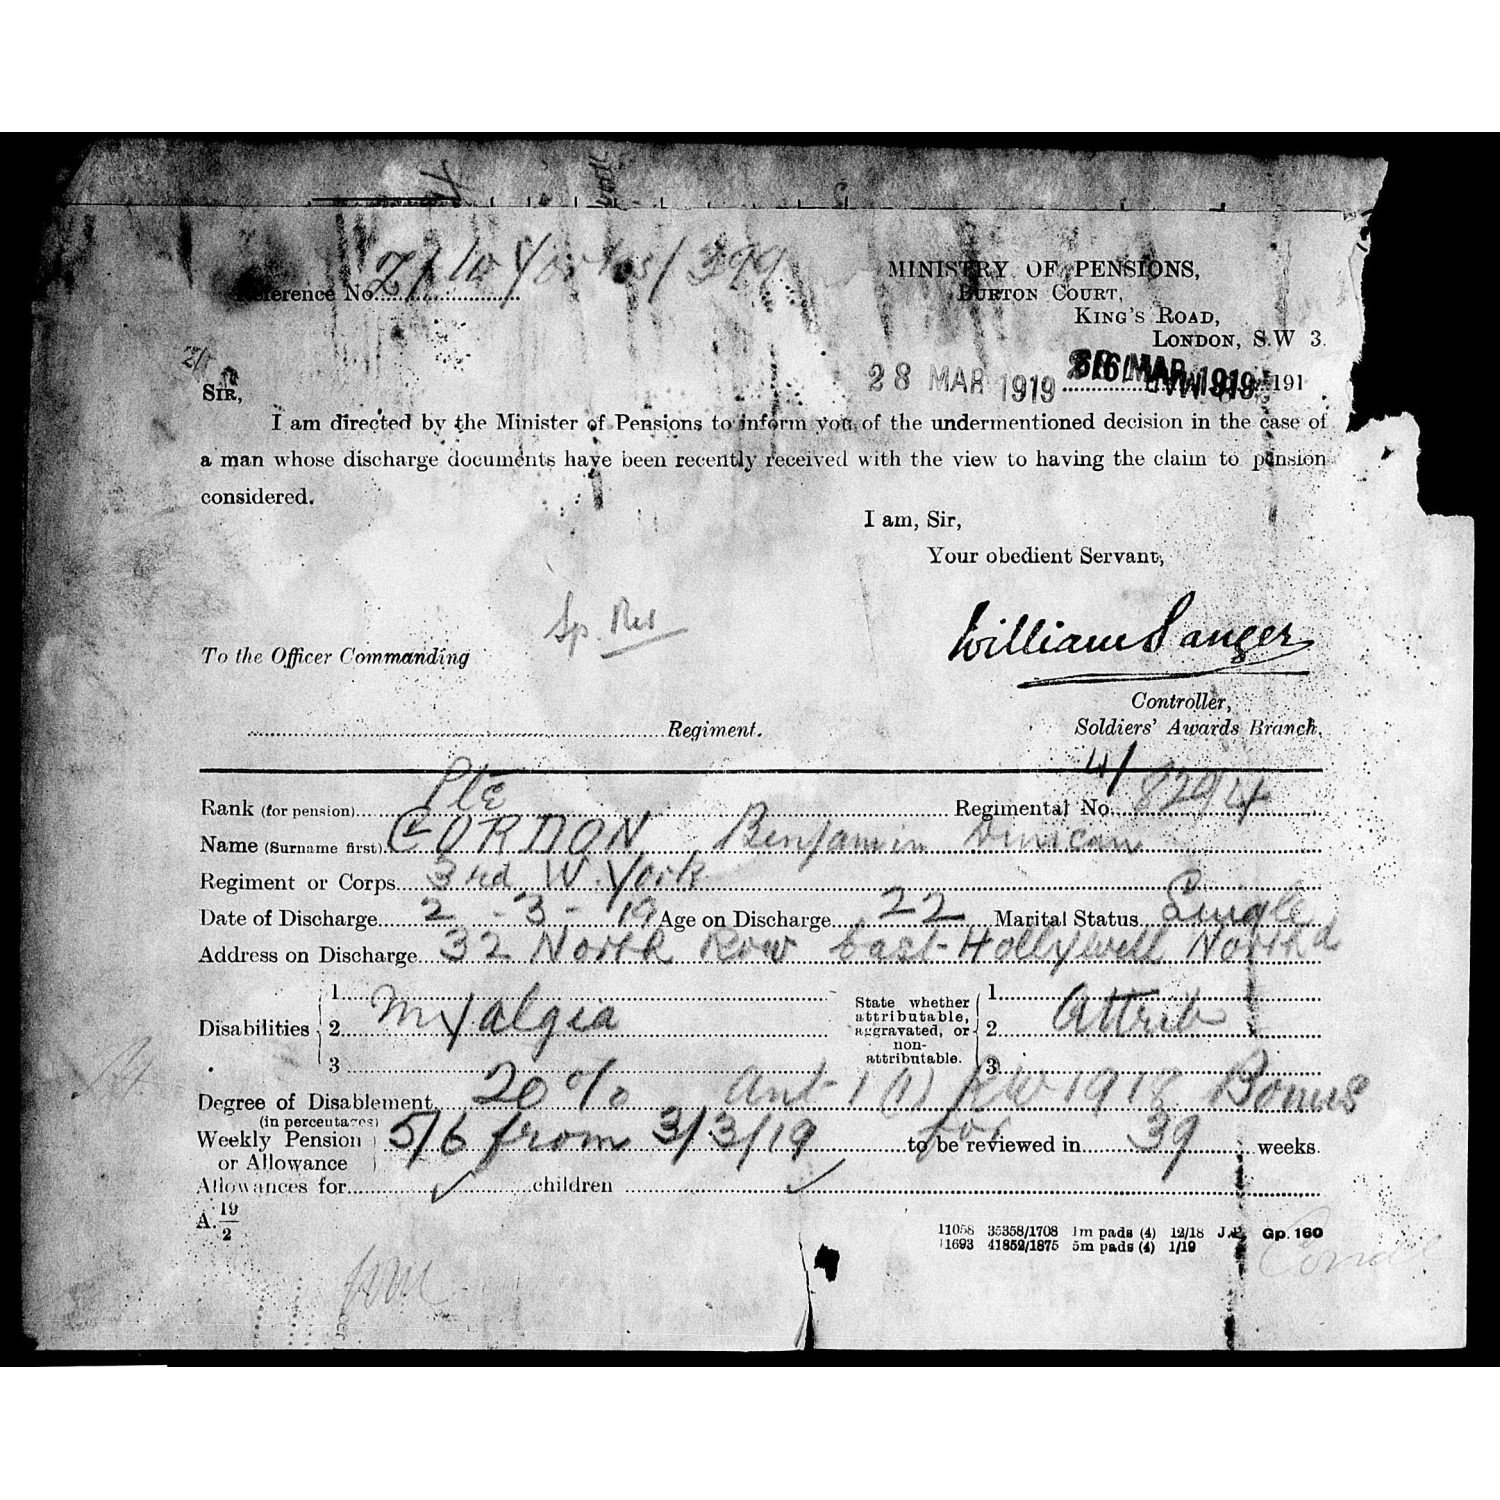 Reference No. 2/W Yorks/399
MINISTRY OF PENSIONS,
BURTON COURT,
KING'S ROAD,
LONDON, S.W 3.
28 MAR 1919 MAR 1919 191
SIR,
I am directed by the Minister of Pensions to inform you of the undermentioned decision in the case of
a man whose discharge documents have been recently received with the view to having the claim to pension
considered.
I am, Sir,
Your obedient Servant,
Sp. Res
William Sanger
To the Officer Commanding
Controller,
Regiment. Soldiers' Awards Branch.
Rank (for pension) Pte Regimental No. 4/8294
Name (Surname first) GORDON Benjamin Duncan
Regiment or Corps 3rd W. York
Date of Discharge 2 - 3 - 19 Age on Discharge 22 Marital Status Single
Address on Discharge 32 North Row East Hollywell North'd
Disabilities 1 2 Myalgia 3
State whether attributable, aggravated, or non-attributable. 1 2 Attrib 3
Degree of Disablement 20 % Art 1 (1) RW 1918 Bonus
(in percentages)
Weekly Pension or Allowance 5/6 from 3/3/19 for to be reviewed in 39 weeks.
Allowances for ✓ children ✓
A. 19/2
11058 35358/1708 1m pads (4) 12/18 J.P. Gp. 160
11693 41852/1875 5m pads (4) 1/19